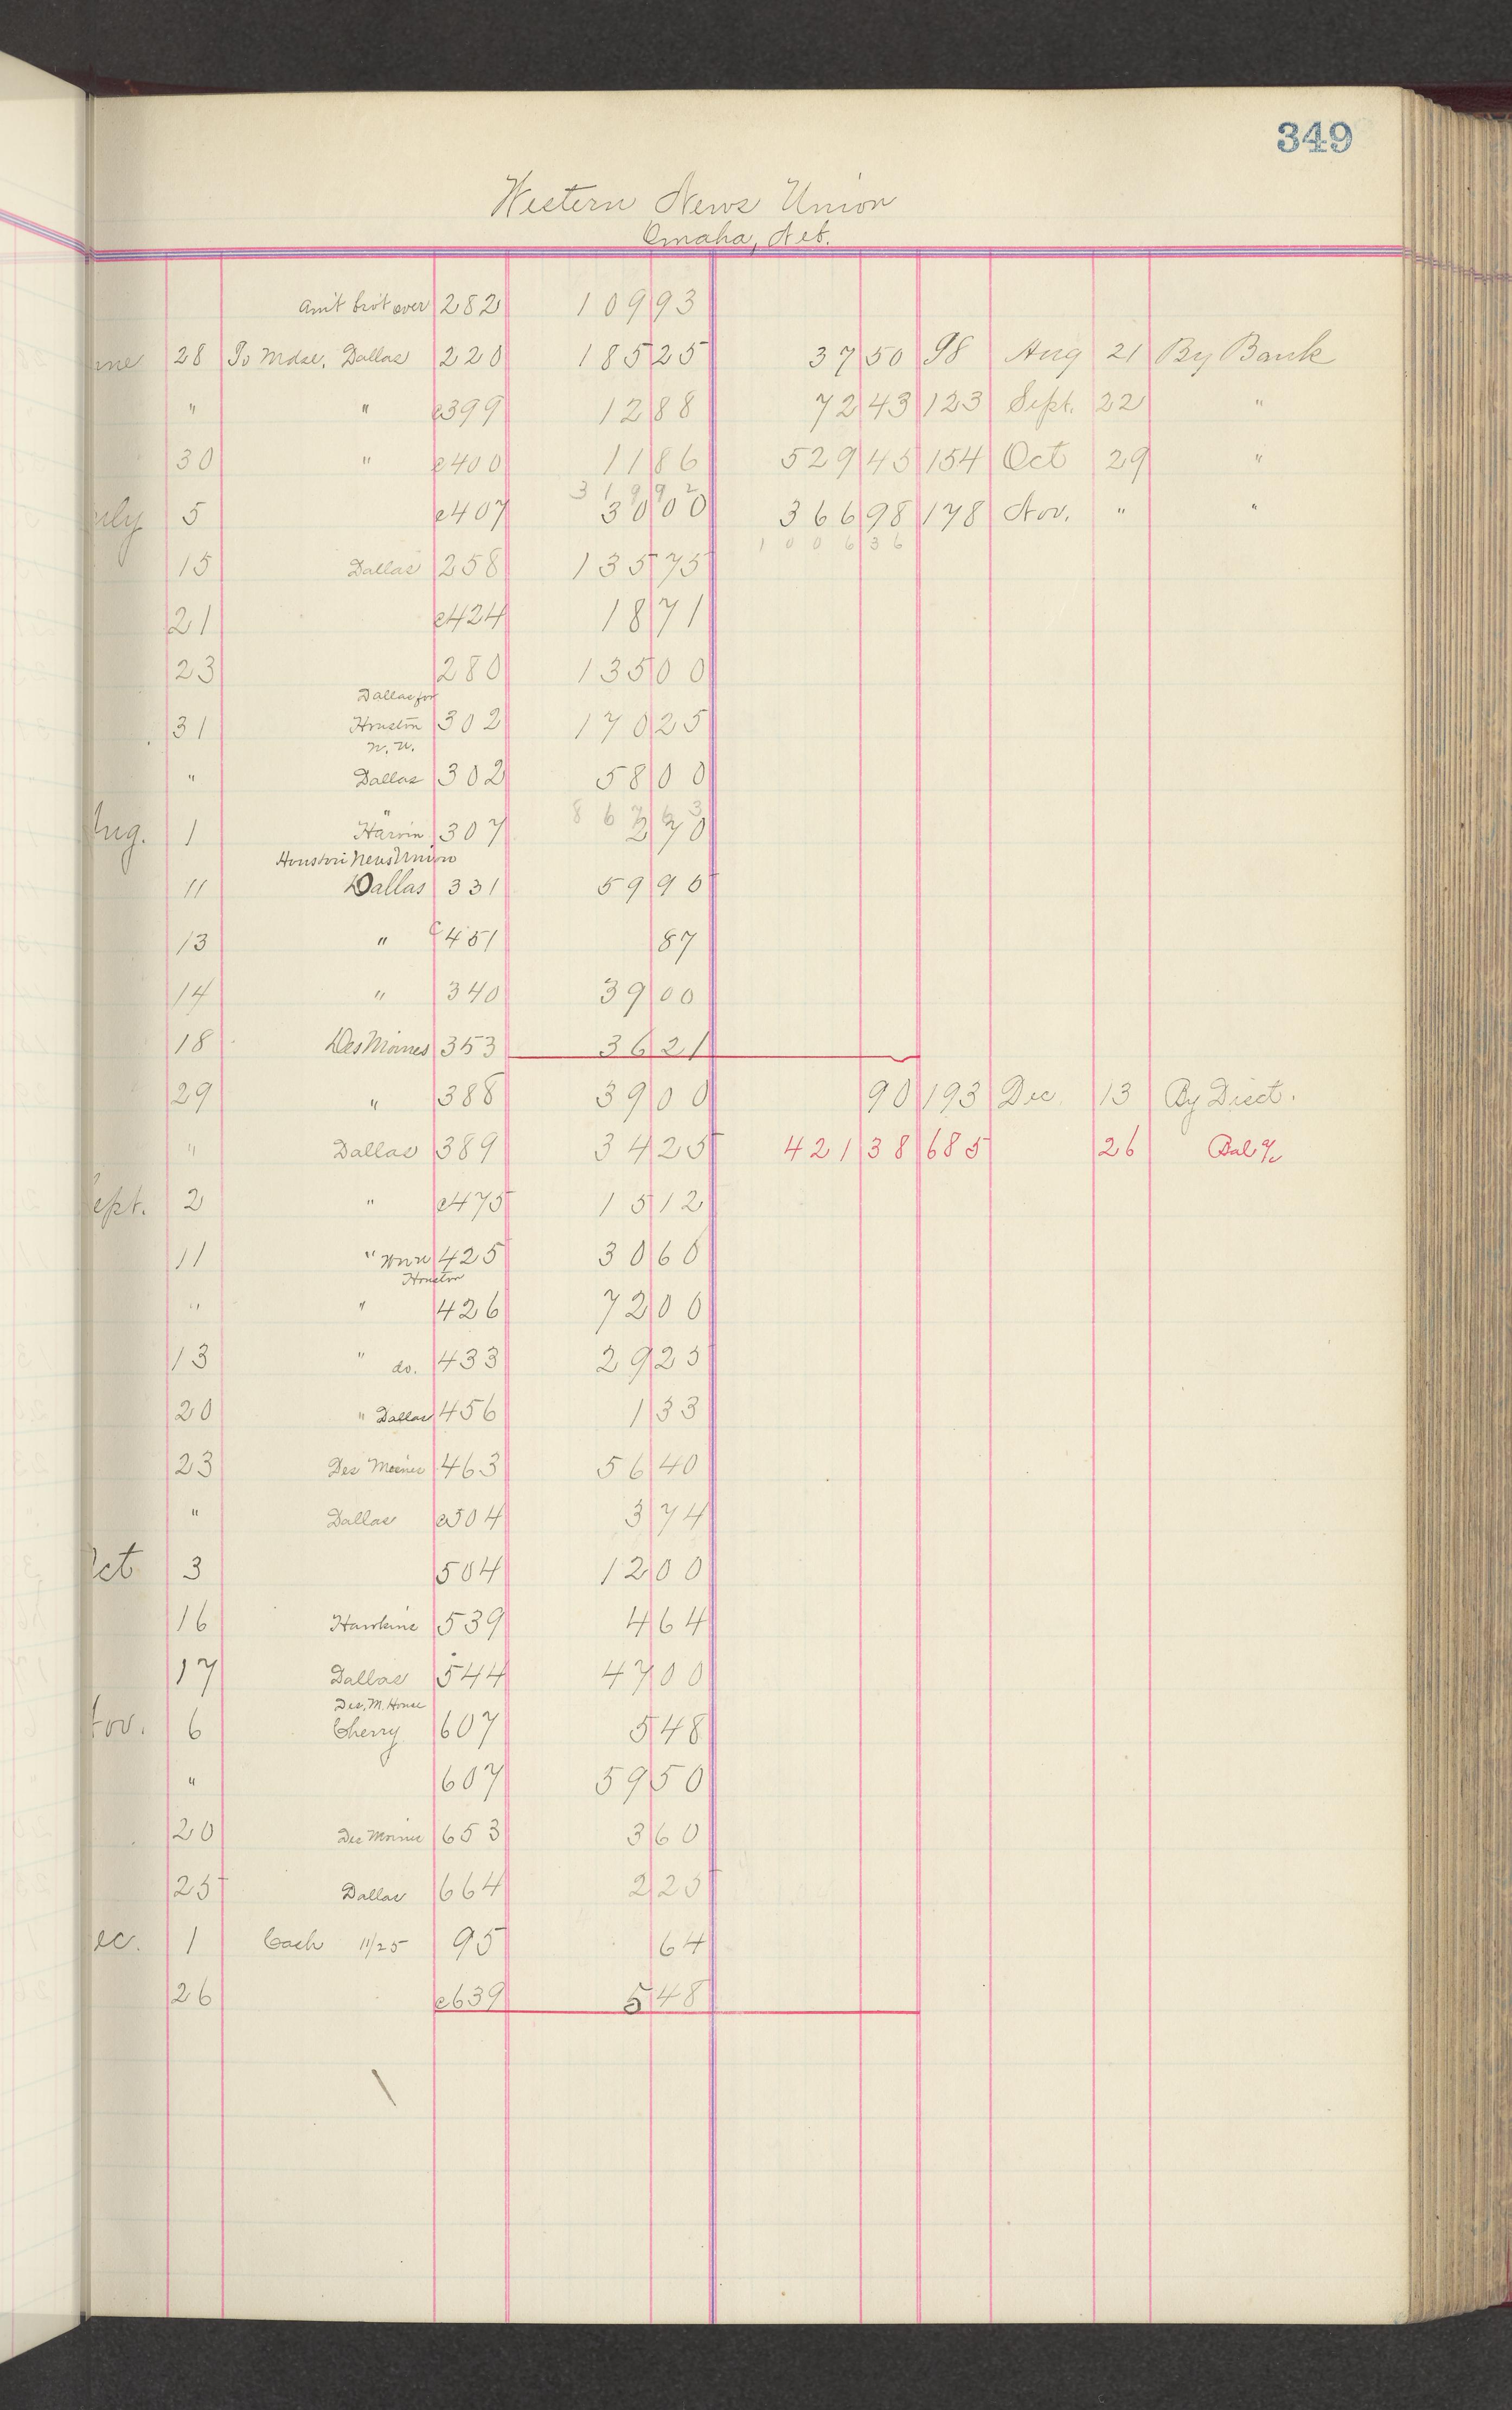 349
Western News Union
Omaha, Neb.
Am't bro't over 282 109 93
ne 28 To Mdse. Dallas 220 185 25 37 50 98 Aug 21 By Bank
" " c399 12 88 72 43 123 Sept. 22 "
30 " c400 11 86 529 45 154 Oct 29 "
319 92
uly 5 c407 30 00 366 98 178 Nov. " "
1006 36
15 Dallas 258 135 75
21 c424 18 71
23 280 135 00
Dallas for
31 Houston 302 170 25
N. U.
" Dallas 302 58 00
" 867 63
Aug. 1 307 2 70
Houston News Union
11 Dallas 331 59 90
13 " c451 87
14 " 340 39 00
18 Des Moines 353 36 21
29 " 388 39 00 90 193 Dec. 13 By Disct.
" Dallas 389 34 25 421 38 685 26 Bal %
ept. 2 " c475 15 12
11 " WNU 425 30 60
Houston
" " 426 72 00
13 " do. 433 29 25
20 " Dallas 456 1 33
23 Des Moines 463 56 40
" Dallas c504 3 74
Oct 3 504 12 00
16 Hawkins 539 4 64
17 Dallas 544 47 00
Des. M. House
Nov. 6 Cherry 607 5 48
" 607 59 50
20 Des Moines 653 3 60
25 Dallas 664 2 25
ec. 1 Cash 11/25 95 64
26 c639 5 48